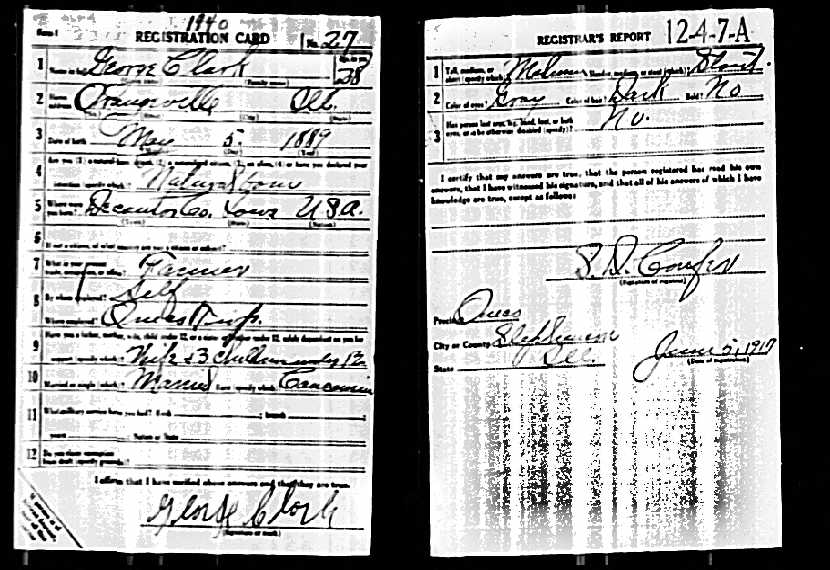 1940
Form 1 REGISTRATION CARD No. 27
1 Name in full George Clark Age, in yrs. 28
(Given name) (Family name)
2 Home address Orangeville Ill.
(No.) (Street) (City) (State)
3 Date of birth May 5 1889
(Month) (Day) (Year)
4 Are you (1) a natural-born citizen, (2) a naturalized citizen, (3) an alien, (4) or have you declared your
intention (specify which)? Natural born
5 Where were you born? Decatur Co. Iowa U.S.A.
(Town) (State) (Nation)
6 If not a citizen, of what country are you a citizen or subject?
7 What is your present trade, occupation, or office? Farmer
8 By whom employed? Self
Where employed? Oneco Twp.
9 Have you a father, mother, wife, child under 12, or a sister or brother under 12, solely dependent on you for
support (specify which)? Wife & 3 children under 12
10 Married or single (which)? Married Race (specify which)? Caucasian
11 What military service have you had? Rank ; branch ;
years ; Nation or State
12 Do you claim exemption from draft (specify grounds)?
I affirm that I have verified above answers and that they are true.
George Clark
(Signature or mark)
REGISTRAR'S REPORT 12-4-7-A
1 Tall, medium, or short (specify which)? Medium Slender, medium, or stout (which)? Stout.
2 Color of eyes? Gray Color of hair? Dark Bald? No
3 Has person lost arm, leg, hand, foot, or both
eyes, or is he otherwise disabled (specify)? No.
I certify that my answers are true, that the person registered has read his own
answers, that I have witnessed his signature, and that all of his answers of which I have
knowledge are true, except as follows:
(Signature of registrar)
Precinct Oneco
City or County Stephenson
State Ill. June 5, 1917
(Date of registration)